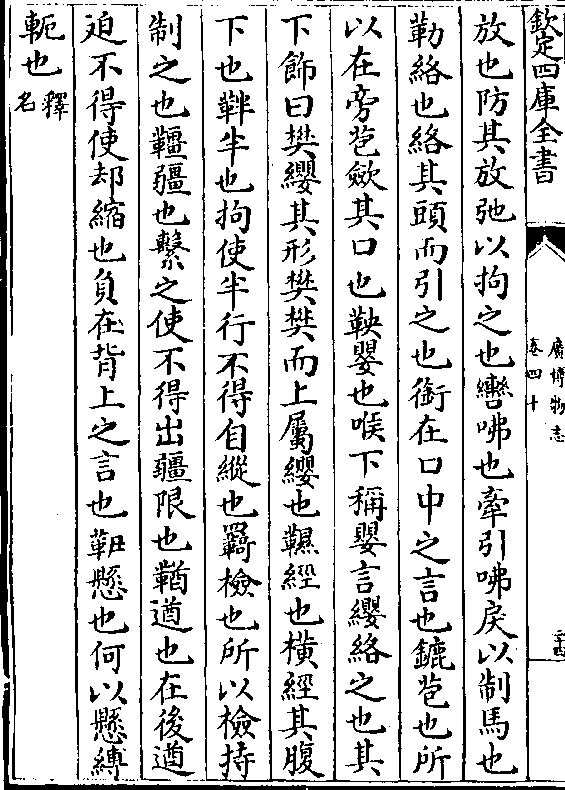 欽定四庫全書
廣博物志
卷四十
二十四
放也防其放弛以拘之也轡咈也牽引咈戾以制馬也
勒絡也絡其頭而引之也銜在口中之言也鑣苞也所
以在旁苞斂其口也鞅嬰也喉下稱嬰言纓絡之也其
下飾曰樊纓其形樊樊而上屬纓也韅經也橫經其腹
下也靽半也拘使半行不得自縱也羈檢也所以檢持
制之也韁疆也繫之使不得出疆限也鞧遒也在後遒
迫不得使却縮也負在背上之言也䩞懸也何以懸縛
軛也釋
名